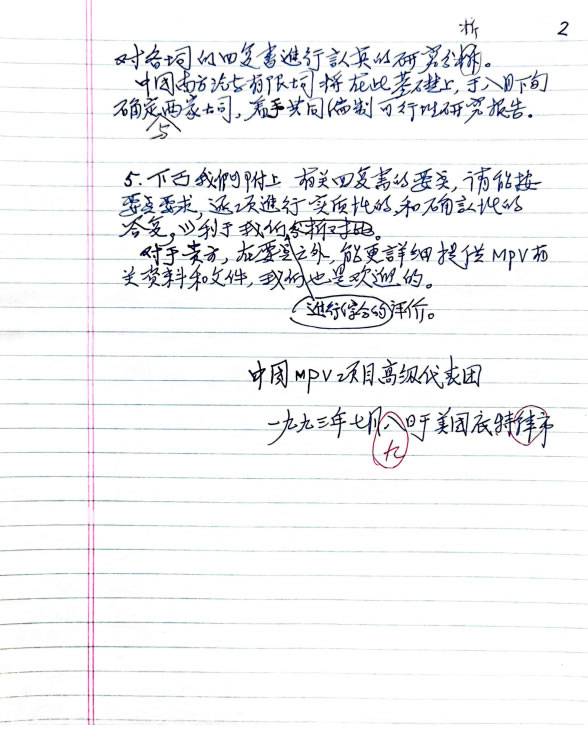 析 2
对各公司的回复書進行認真的研究分析。
中国南方汽车有限公司将在此基礎上，于八月下旬
确定与两家公司，着手共同编制可行性研究报告。
5. 下面我們附上有关回复書的要点，请能按
要点要求，逐项進行实质性的和确認性的
答复，以利于我们
进行综合的评价。
对于贵方，在要点之外，能更詳细提供MPV有
关资料和文件，我们也是欢迎的。
中国MPV项目高级代表团
一九九三年七月八日于美国底特律市
九